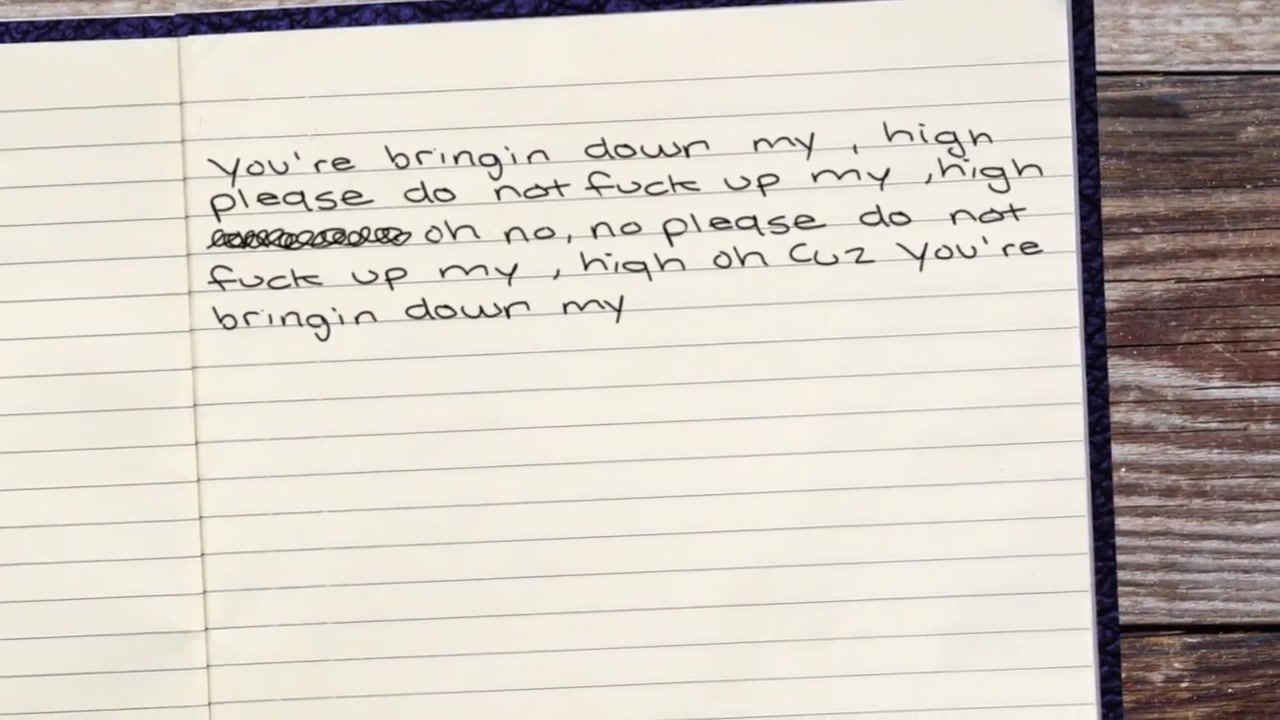 You're bringin down my , high
please do not fuck up my ,high
oh no, no please do not
fuck up my , high oh Cuz You're
bringin down my